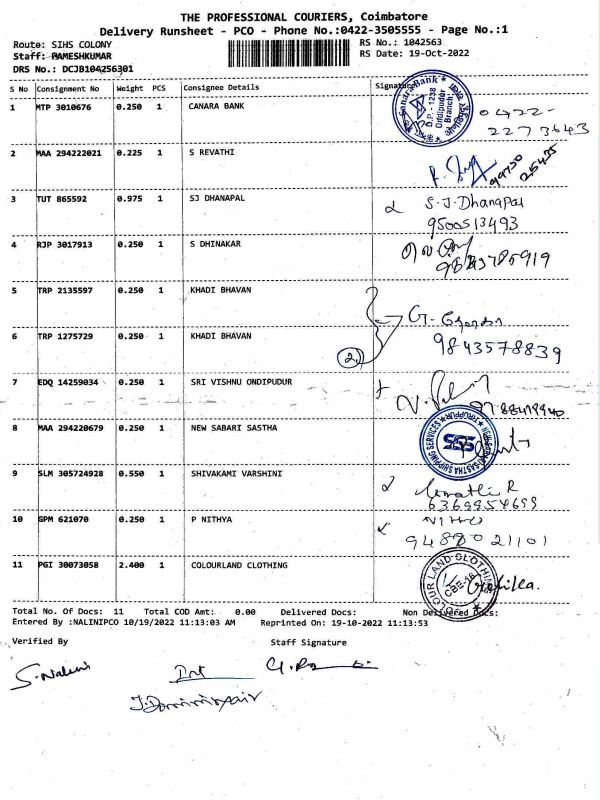 THE PROFESSIONAL COURIERS, Coimbatore
Delivery Runsheet - PCO - Phone No.:0422-3505555 - Page No.:1
Route: SIHS COLONY
RS No.: 1042563
Staff: RAMESHKUMAR
RS Date: 19-Oct-2022
DRS No.: DCJB104256301
S No Consignment No Weight PCS Consignee Details Signature
1 MTP 3010676 0.250 1 CANARA BANK
0422-
2273643
2 MAA 294222021 0.225 1 S REVATHI
3 TUT 865592 0.975 1 SJ DHANAPAL S.J.Dhanapal
9500513493
4 RJP 3017913 0.250 1 S DHINAKAR
5 TRP 2135597 0.250 1 KHADI BHAVAN
6 TRP 1275729 0.250 1 KHADI BHAVAN
2
9843578839
7 EDQ 14259034 0.250 1 SRI VISHNU ONDIPUDUR
8 MAA 294220679 0.250 1 NEW SABARI SASTHA
SSS
9 SLM 305724928 0.550 1 SHIVAKAMI VARSHINI
10 GPM 621070 0.250 1 P NITHYA
9488021101
11 PGI 30073058 2.400 1 COLOURLAND CLOTHING
COLOUR LAND CLOTHING
CBE-16
Total No. Of Docs: 11 Total COD Amt: 0.00 Delivered Docs: Non Delivered Docs:
Entered By :NALINIPCO 10/19/2022 11:13:03 AM Reprinted On: 19-10-2022 11:13:53
Verified By Staff Signature
S.Nalini